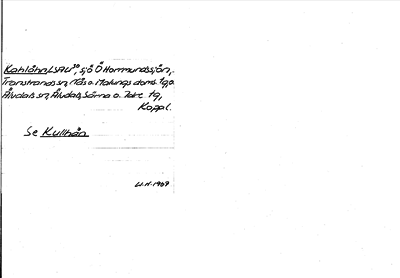 Kahlåhn, LSALU³⁰, sjö Ö Hormundssjön,
Transtrands sn, Nås o. Malungs doms. tg o.
Älvdals sn, Älvdals, Särna o. Idre tg,
Koppl.
Se Kullhån
U.H. 1939